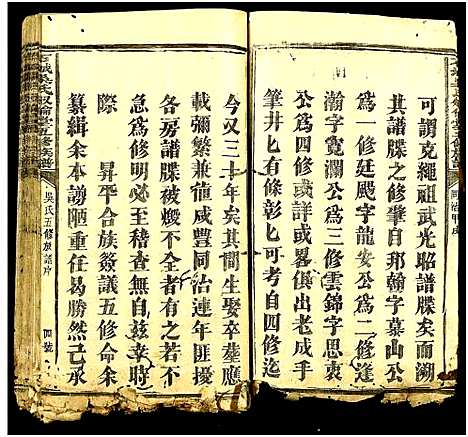 可謂克繩祖武光昭譜牒矣而溯
其譜牒之修肇自邦翰字慕山公
一修廷颺字龍安公為二修逢
瀚字寬瀾公為三修雲錦字思衷
公為四修
筆井井有條彰彰可考自四修迄
今又三十年矣其間生娶卒葬應
載彌繁兼值咸豐同治連年匪擾
各房譜牒被燬不一
急為修明必至稽查無自茲幸時
際　昇平合族僉議五修命余
纂緝余本謭陋重任曷勝然己承
吳氏五修族譜
四號